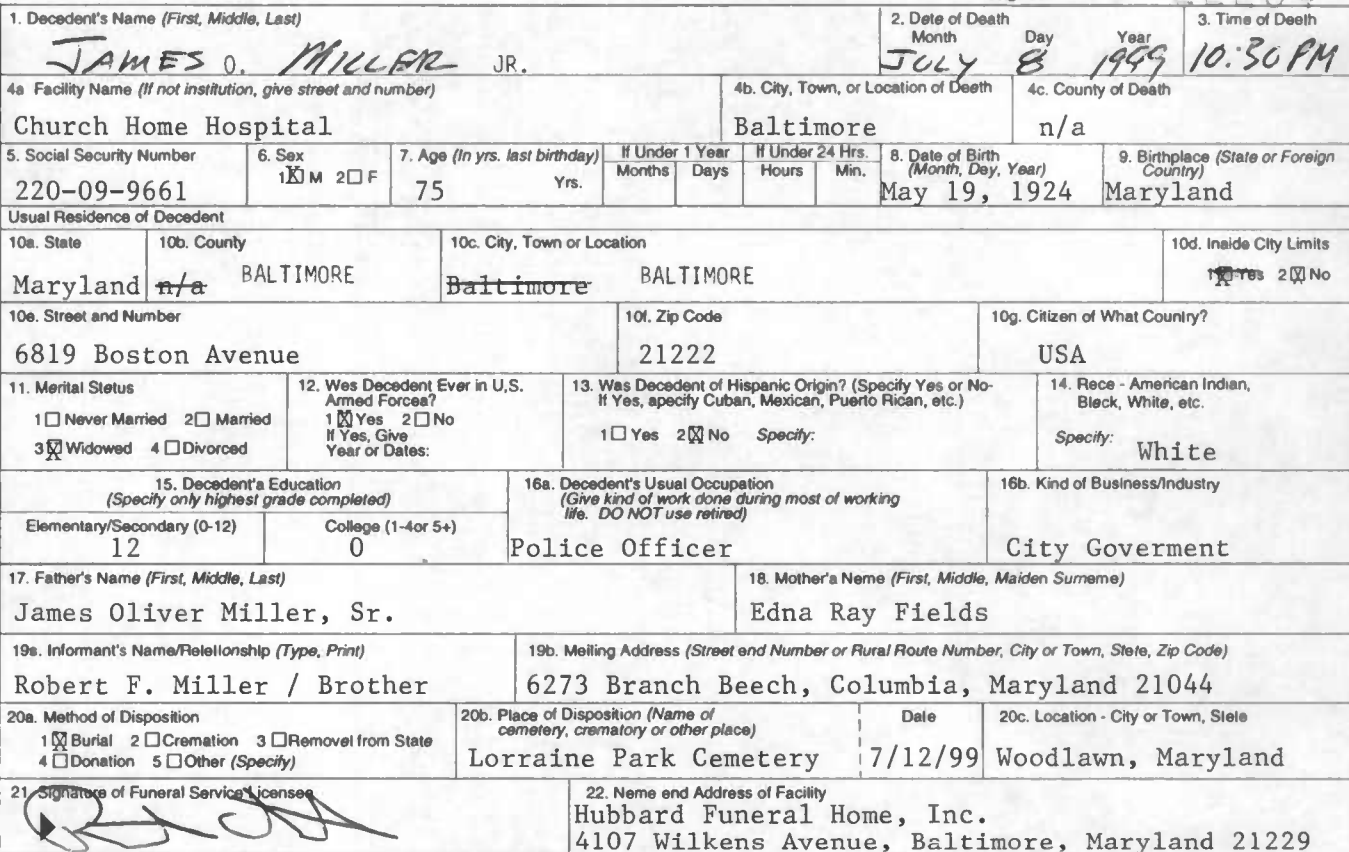 1. Decedent's Name (First, Middle, Last)
JAMES O. MILLER JR.
2. Date of Death
Month Day Year
JULY 8 1999
3. Time of Deeth
10:30 PM
4a Facility Name (If not institution, give street and number)
Church Home Hospital
4b. City, Town, or Location of Deeth
Baltimore
4c. County of Death
n/a
5. Social Security Number
220-09-9661
6. Sex
1 X M 2 □ F
7. Age (In yrs. last birthday)
75 Yrs.
If Under 1 Year
Months Days
If Under 24 Hrs.
Hours Min.
8. Date of Birth
(Month, Day, Year)
May 19, 1924
9. Birthplace (State or Foreign
Country)
Maryland
Usual Residence of Decedent
10a. State
Maryland
10b. County
n/a BALTIMORE
10c. City, Town or Location
Baltimore BALTIMORE
10d. Inside City Limits
1 X Yes 2 X No
10e. Street and Number
6819 Boston Avenue
10f. Zip Code
21222
10g. Citizen of What Country?
USA
11. Meritel Stetus
1 □ Never Married 2 □ Married
3 X Widowed 4 □ Divorced
12. Wes Decedent Ever in U.S.
Armed Forcea?
1 X Yes 2 □ No
If Yes, Give
Year or Dates:
13. Was Decedent of Hispanic Origin? (Specify Yes or No-
If Yes, apecify Cuban, Mexican, Puerto Rican, etc.)
1 □ Yes 2 X No Specify:
14. Rece - American Indian,
Bleck, White, etc.
Specify: White
15. Decedent'a Education
(Specify only highest grade completed)
Elementary/Secondary (0-12)
12
College (1-4or 5+)
0
16a. Decedent's Usual Occupation
(Give kind of work done during most of working
life. DO NOT use retired)
Police Officer
16b. Kind of Business/Industry
City Goverment
17. Father's Name (First, Middle, Last)
James Oliver Miller, Sr.
18. Mother'a Neme (First, Middle, Maiden Surneme)
Edna Ray Fields
19s. Informant's Name/Reletlonshlp (Type, Print)
Robert F. Miller / Brother
19b. Meiling Address (Street end Number or Rural Route Number, City or Town, Stete, Zip Code)
6273 Branch Beech, Columbia, Maryland 21044
20a. Method of Disposition
1 X Burial 2 □ Cremation 3 □ Removel from State
4 □ Donation 5 □ Other (Specify)
20b. Place of Disposition (Name of
cemetery, crematory or other place)
Lorraine Park Cemetery
Date
7/12/99
20c. Location - City or Town, Stele
Woodlawn, Maryland
21. Signature of Funeral Service Licensee
22. Neme end Address of Facility
Hubbard Funeral Home, Inc.
4107 Wilkens Avenue, Baltimore, Maryland 21229